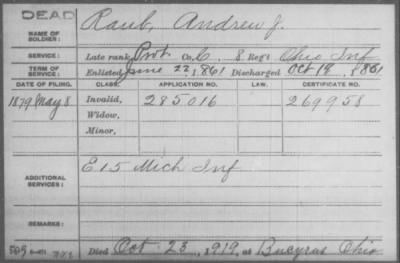 DEAD
NAME OF SOLDIER: Raub, Andrew J.
SERVICE: Late rank, Pvt Co. C, 8 Reg't Ohio Inf
TERM OF SERVICE: Enlisted June 22, 1861 Discharged Oct 19, 1861
DATE OF FILING. CLASS. APPLICATION NO. LAW. CERTIFICATE NO.
1879 May 8 Invalid, 285016 269958
Widow,
Minor,
ADDITIONAL SERVICES: E 15 Mich Inf
REMARKS:
Died Oct 23, 1919, at Bucyrus Ohio